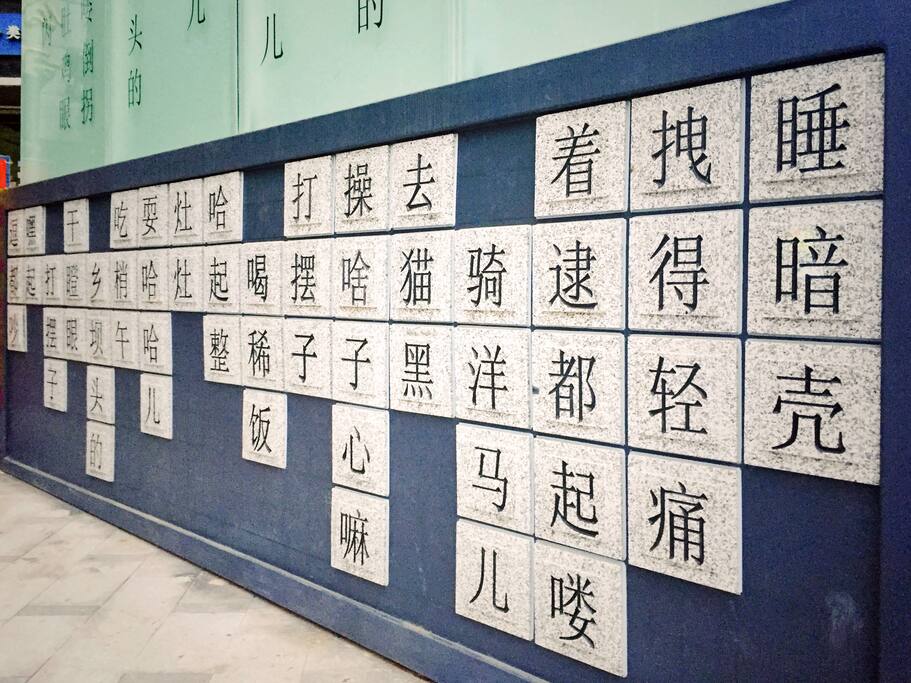 睡暗壳
拽得轻痛
着逮都起喽
骑洋马儿
去猫黑
操啥子心嘛
打摆子
喝稀饭
哈起整
灶灶
耍哈哈儿
吃梢午
乡坝头的
干瞪眼
打子
起
都
的
儿
儿
头的
倒拐
眼